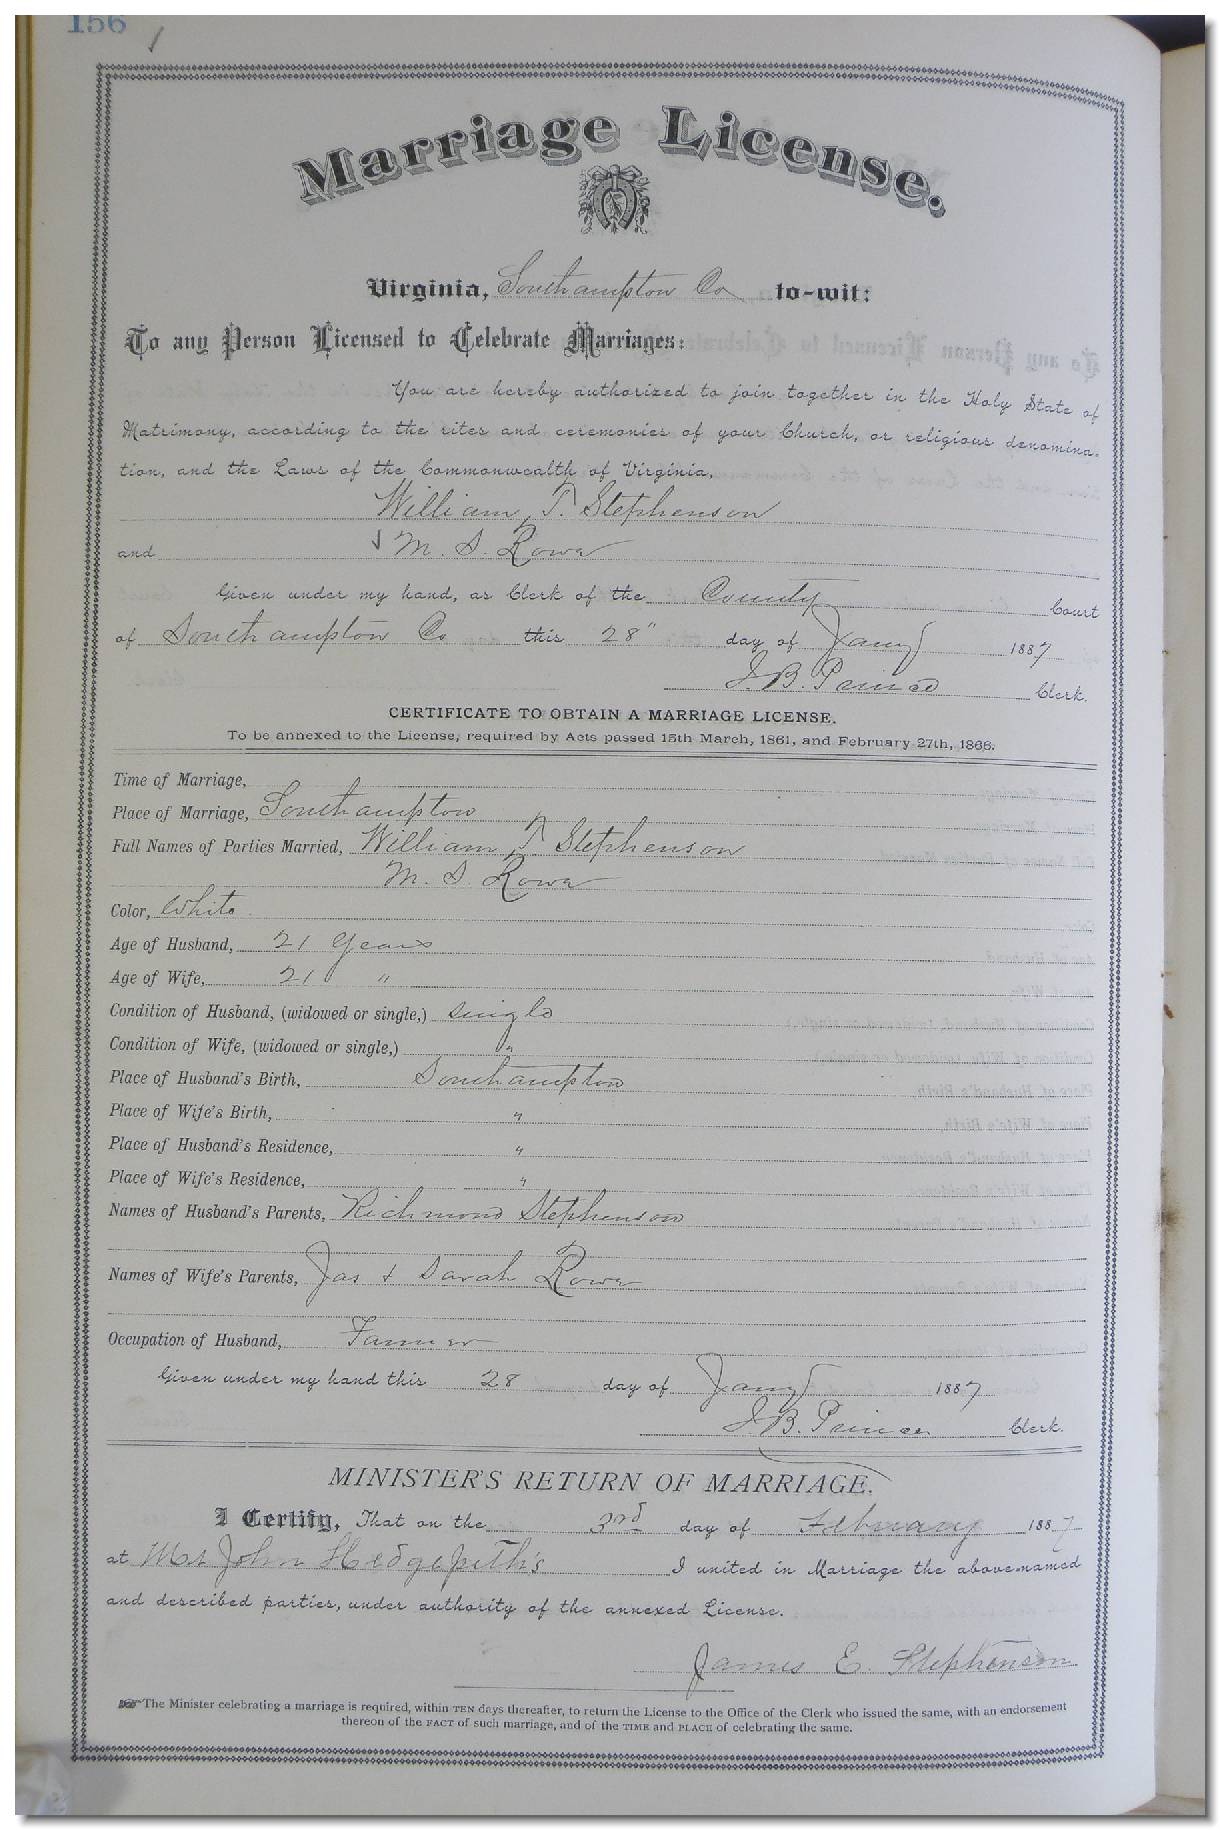 156
Marriage License.
Virginia, Southampton Co to-wit:
To any Person Licensed to Celebrate Marriages:
You are hereby authorized to join together in the Holy State of
Matrimony, according to the rites and ceremonies of your Church, or religious denomina-
tion, and the Laws of the Commonwealth of Virginia,
William T. Stephenson
and M. S. Rowe
Given under my hand, as Clerk of the County Court
of Southampton Co this 28" day of Jany 1887
J. B. Prince Clerk.
CERTIFICATE TO OBTAIN A MARRIAGE LICENSE.
To be annexed to the License, required by Acts passed 15th March, 1861, and February 27th, 1866.
Time of Marriage,
Place of Marriage, Southampton
Full Names of Parties Married, William T Stephenson
M. S. Rowe
Color, White
Age of Husband, 21 years
Age of Wife, 21 "
Condition of Husband, (widowed or single,) single
Condition of Wife, (widowed or single,) "
Place of Husband's Birth, Southampton
Place of Wife's Birth, "
Place of Husband's Residence, "
Place of Wife's Residence, "
Names of Husband's Parents, Richmond Stephenson
Names of Wife's Parents, Jas & Sarah Rowe
Occupation of Husband, Farmer
Given under my hand this 28 day of Jany 1887
J. B. Prince Clerk.
MINISTER'S RETURN OF MARRIAGE.
I Certify, That on the 3rd day of February 1887
at Mr John Hedgepeth's I united in Marriage the above-named
and described parties, under authority of the annexed License.
James E. Stephenson
The Minister celebrating a marriage is required, within TEN days thereafter, to return the License to the Office of the Clerk who issued the same, with an endorsement
thereon of the FACT of such marriage, and of the TIME and PLACE of celebrating the same.